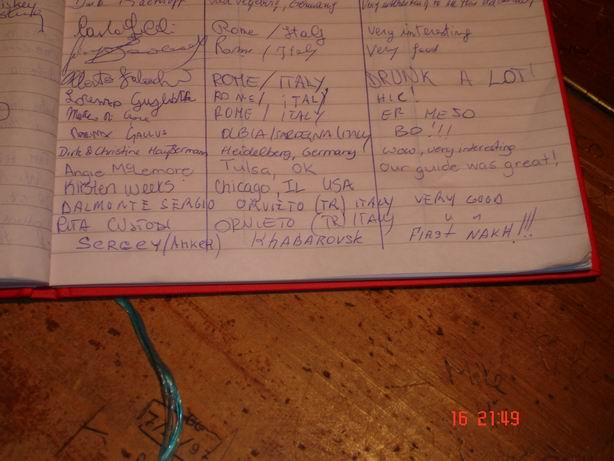 Germany
Rome / Italy Very interesting
Rome / Italy Very good
ROME / ITALY DRUNK A LOT!
Lorenzo ROME / ITALY HIC!
ROME / ITALY ER MEJO
GALLUS OLBIA/SARDEGNA/ITALY BO!!!
Dirk & Christine Haußermann Heidelberg, Germany wow, very interesting
Angie McLemore Tulsa, OK Our guide was great!
Kirsten Weeks Chicago, IL USA
DALMONTE SERGIO ORVIETO (TR) ITALY VERY GOOD
RITA CUSTODI ORVIETO (TR) ITALY " "
SERGEY (Anker) KHABAROVSK FIRST NAKH!!!
Mike
16 21:49